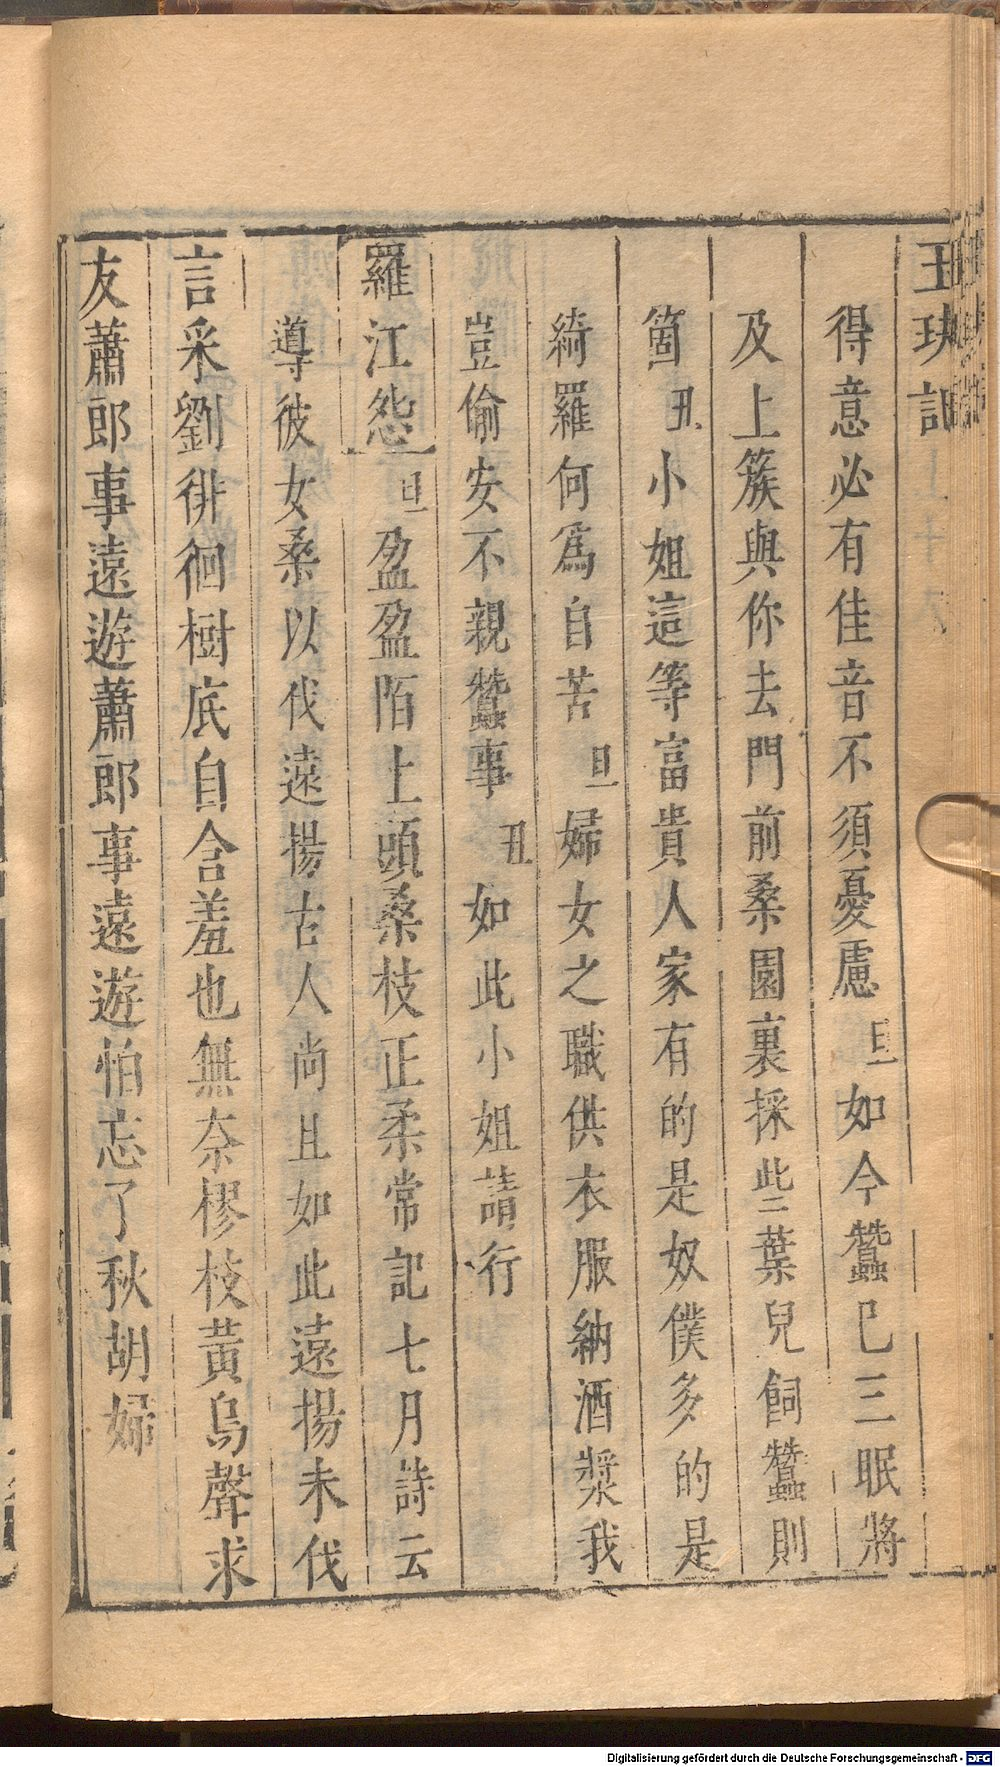 玉玦記
得意必有佳音不須憂慮旦如今蠶已三眠將
及上簇與你去門前桑園裏採些葉兒飼蠶則
箇丑小姐這等富貴人家有的是奴僕多的是
綺羅何爲自苦旦婦女之職供衣服納酒漿我
豈偷安不親蠶事丑如此小姐請行
羅江怨旦盈盈陌上頭桑枝正柔常記七月詩云
遵彼女桑以伐遠揚古人尚且如此遠揚未伐
言采劉徘徊樹底自含羞也無奈樛枝黃鳥聲求
友蕭郎事遠遊蕭郎事遠遊怕忘了秋胡婦
Digitalisierung gefördert durch die Deutsche Forschungsgemeinschaft - DFG